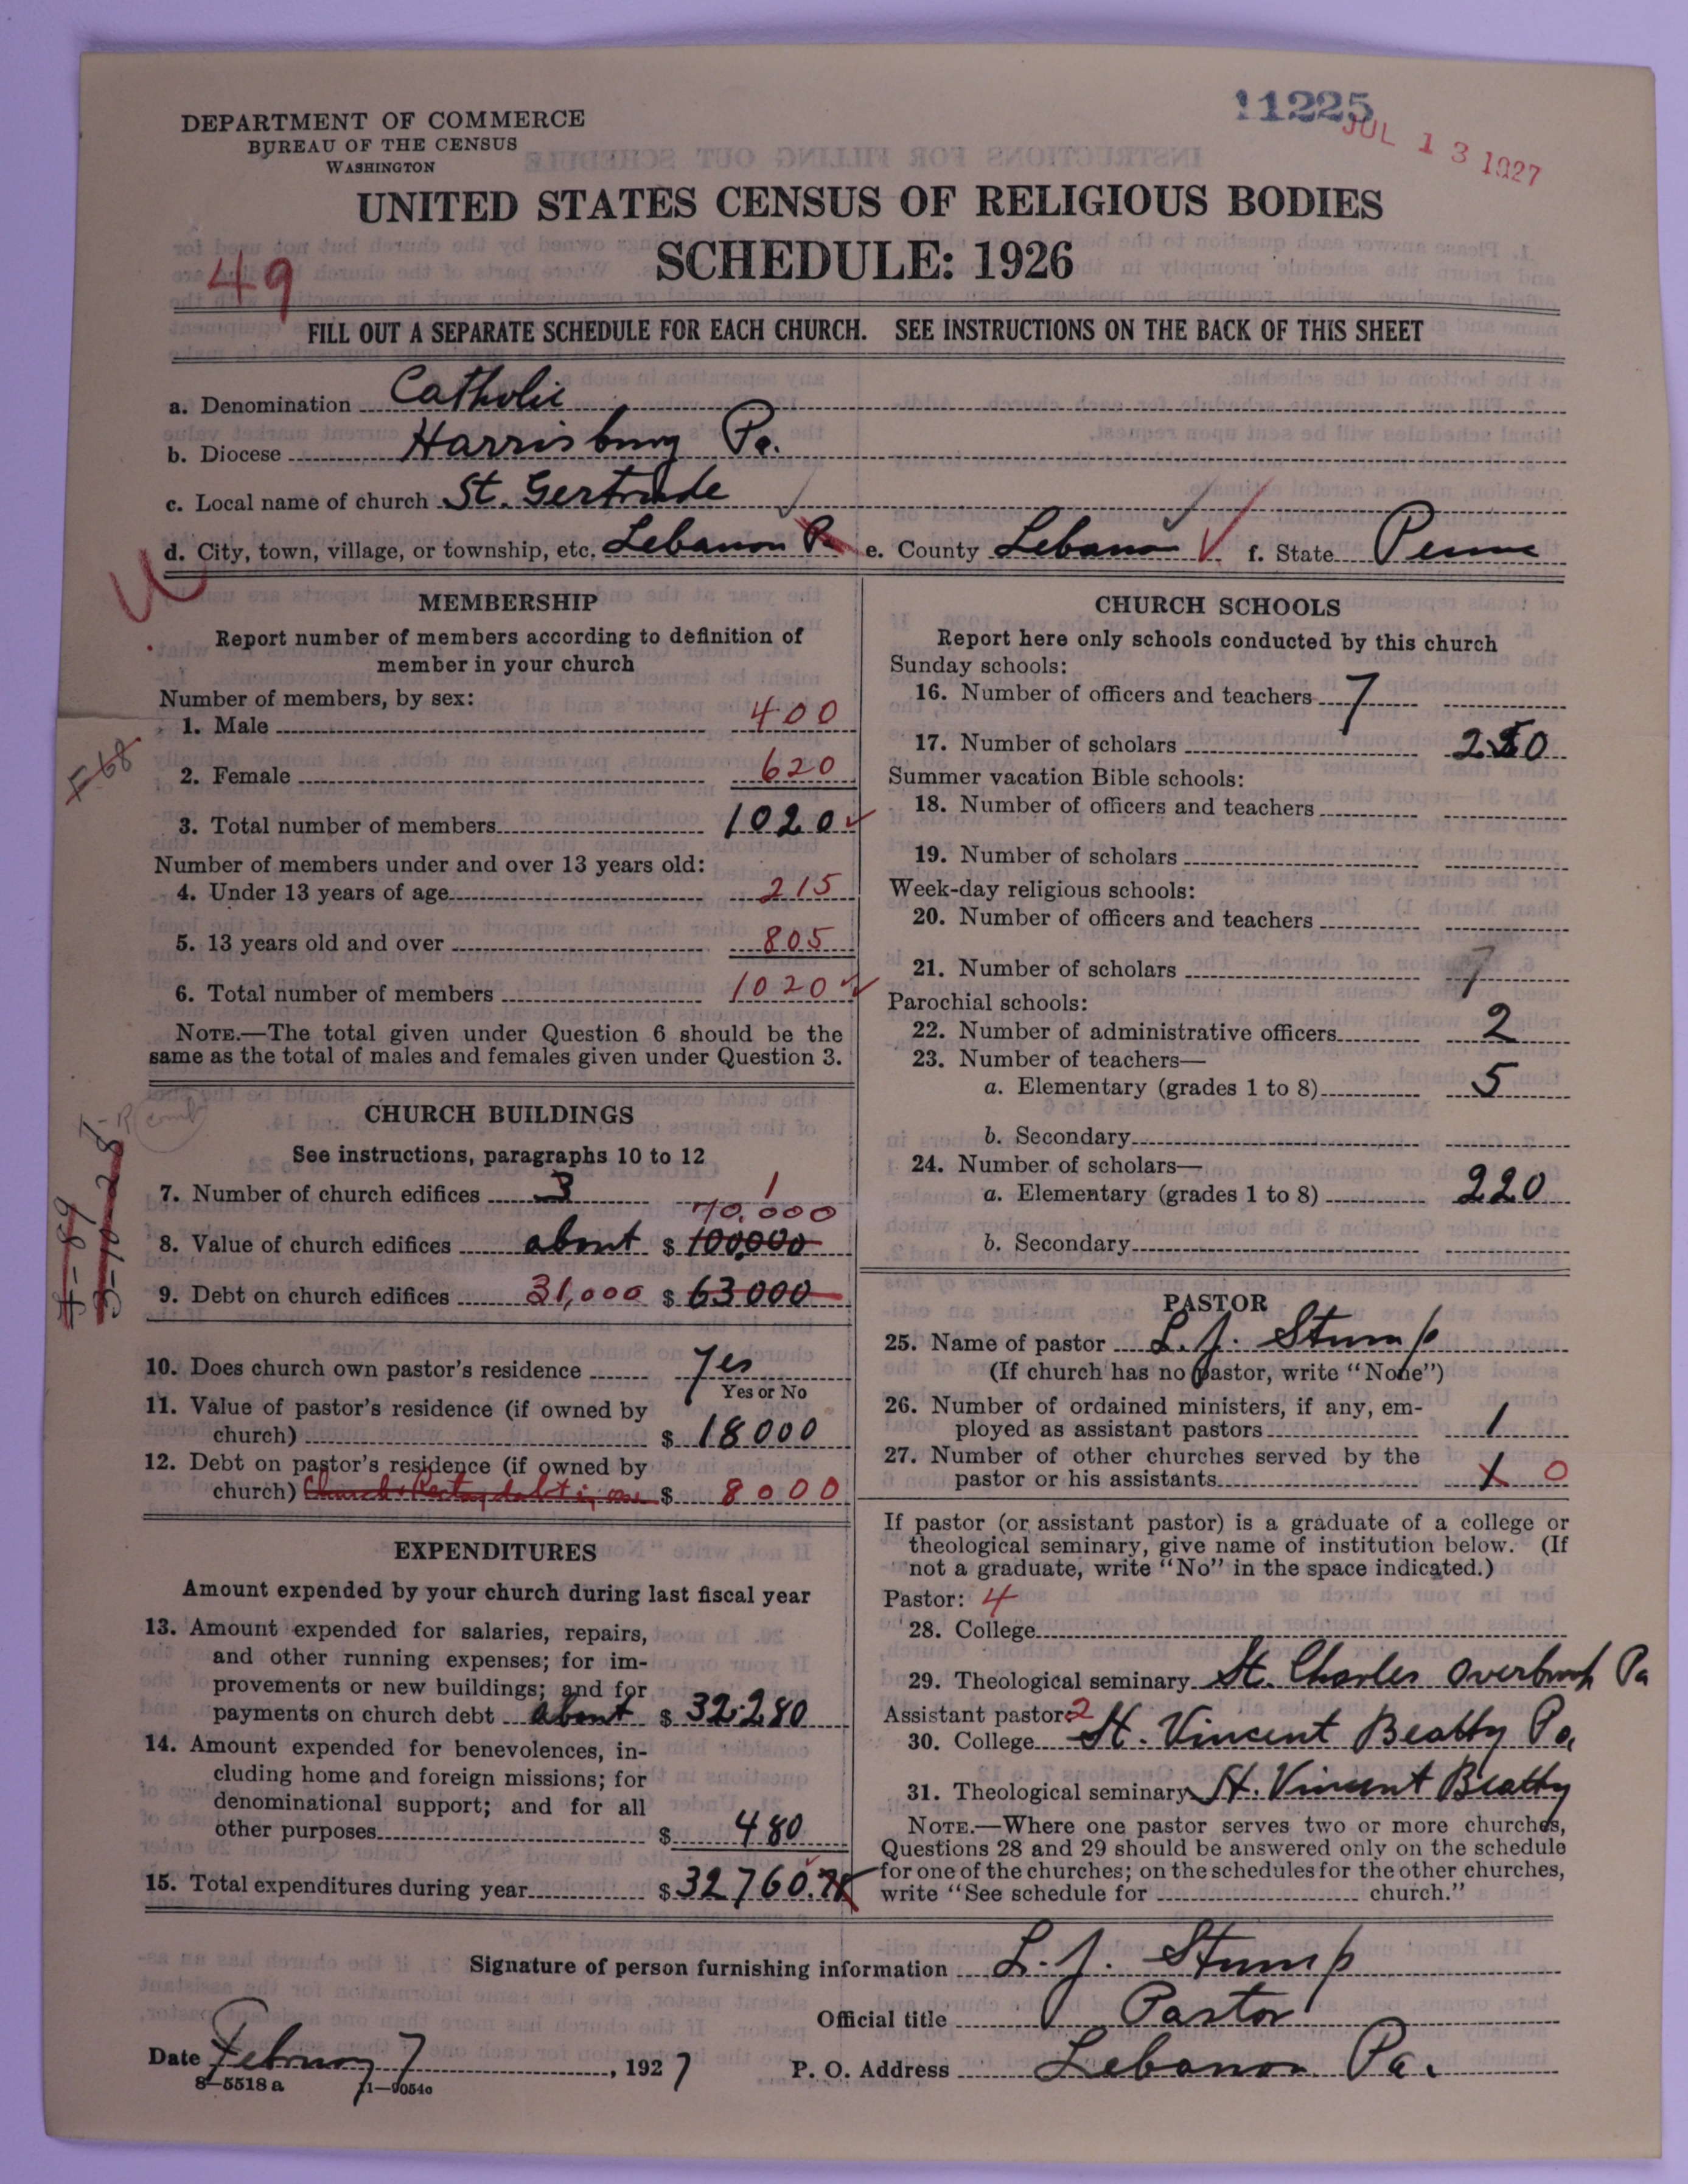 11225
JUL 13 1927
DEPARTMENT OF COMMERCE
BUREAU OF THE CENSUS
WASHINGTON
UNITED STATES CENSUS OF RELIGIOUS BODIES
SCHEDULE: 1926
49
FILL OUT A SEPARATE SCHEDULE FOR EACH CHURCH. SEE INSTRUCTIONS ON THE BACK OF THIS SHEET
a. Denomination Catholic
b. Diocese Harrisburg Pa.
c. Local name of church St. Gertrude
d. City, town, village, or township, etc. Lebanon Pa e. County Lebanon f. State Penna
MEMBERSHIP
Report number of members according to definition of
member in your church
Number of members, by sex:
1. Male 400
2. Female 620
F-68
3. Total number of members 1020
Number of members under and over 13 years old:
4. Under 13 years of age 215
5. 13 years old and over 805
6. Total number of members 1020
NOTE.—The total given under Question 6 should be the
same as the total of males and females given under Question 3.
CHURCH BUILDINGS
See instructions, paragraphs 10 to 12
7. Number of church edifices 3 1
70,000
8. Value of church edifices about $ 100,000
9. Debt on church edifices 31,000 $ 63000
10. Does church own pastor's residence Yes
Yes or No
11. Value of pastor's residence (if owned by
church) $ 18000
12. Debt on pastor's residence (if owned by
church) Church & debt is one $ 8000
EXPENDITURES
Amount expended by your church during last fiscal year
13. Amount expended for salaries, repairs,
and other running expenses; for im-
provements or new buildings; and for
payments on church debt about $ 32,280
14. Amount expended for benevolences, in-
cluding home and foreign missions; for
denominational support; and for all
other purposes $ 480
15. Total expenditures during year $ 32760.
CHURCH SCHOOLS
Report here only schools conducted by this church
Sunday schools:
16. Number of officers and teachers 7
17. Number of scholars 250
Summer vacation Bible schools:
18. Number of officers and teachers
19. Number of scholars
Week-day religious schools:
20. Number of officers and teachers
21. Number of scholars 7
Parochial schools:
22. Number of administrative officers 2
23. Number of teachers—
a. Elementary (grades 1 to 8) 5
b. Secondary
24. Number of scholars—
a. Elementary (grades 1 to 8) 220
b. Secondary
PASTOR
25. Name of pastor L. J. Stump
(If church has no pastor, write "None")
26. Number of ordained ministers, if any, em-
ployed as assistant pastors 1
27. Number of other churches served by the
pastor or his assistants 1 0
If pastor (or assistant pastor) is a graduate of a college or
theological seminary, give name of institution below. (If
not a graduate, write "No" in the space indicated.)
Pastor: 4
28. College
29. Theological seminary St. Charles Overbrook Pa
Assistant pastor: 2
30. College St. Vincent Beatty Pa.
31. Theological seminary St. Vincent Beatty
NOTE.—Where one pastor serves two or more churches,
Questions 28 and 29 should be answered only on the schedule
for one of the churches; on the schedules for the other churches,
write "See schedule for church."
Signature of person furnishing information L. J. Stump
Official title Pastor
Date February 7, 1927 P. O. Address Lebanon Pa.
8—5518 a 11—9054o